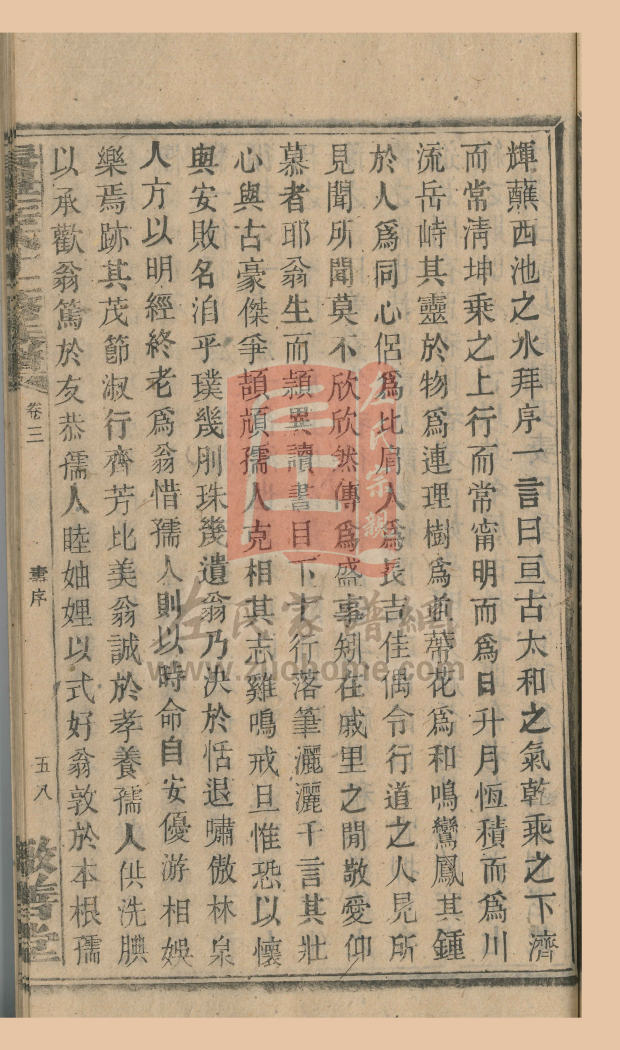 輝蘸西池之水拜序一言曰亘古太和之氣乾乘之下濟
而常清坤乘之上行而常甯明而為日升月恆積而為川
流岳峙其靈於物為連理樹為並蒂花為和鳴鸞鳳其鍾
於人為同心侶為比肩人為長吉佳偶令行道之人見所
見聞所聞莫不欣欣然傳為盛事矧在戚里之閒敬愛仰
慕者耶翁生而頴異讀書目下十行落筆灑灑千言其壯
心與古豪傑爭頡頏孺人克相其志雞鳴戒旦惟恐以懷
與安敗名洎乎璞幾刖珠幾遺翁乃決於恬退嘯傲林泉
人方以明經終老為翁惜孺人則以時命自安優游相娛
樂焉跡其茂節淑行齊芳比美翁誠於孝養孺人供洗腆
以承歡翁篤於友恭孺人睦妯娌以式好翁敦於本根孺
卷三
壽序
五八
敬善堂
左氏宗親
左氏家譜網
www.zuohome.com